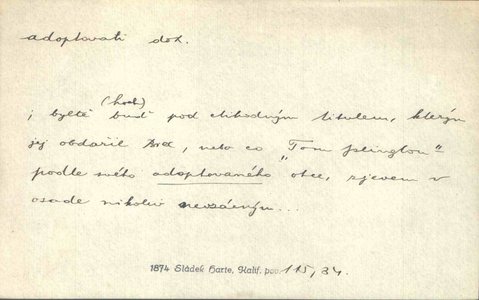 adoptovati dok.
(hoch)
; byltě buď pod lahodným titulem, kterým
jej obdařil Bret, nebo co "Tom Islington"
podle svého adoptovaného otce, zjevem v
osadě nikoliv nevzácným...
1874 Sládek Harte, Kalif. pov. 115, 34.